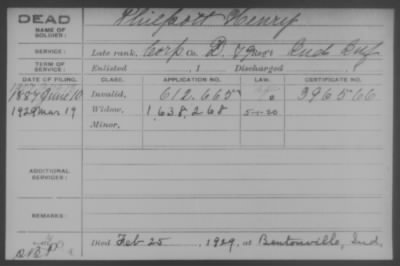 DEAD
NAME OF SOLDIER:
Philpott Henry
SERVICE:
Late rank, Corp Co. D, Ind Inf
TERM OF SERVICE:
Enlisted , 1 Discharged
DATE OF FILING. CLASS. APPLICATION NO. LAW. CERTIFICATE NO.
1887 June 10 Invalid, 612.665 396566
1929 Mar 19 Widow, 1,638,268 5-1-20
Minor,
ADDITIONAL SERVICES:
REMARKS:
Died Feb 25, 1929, at Bentonville, Ind.